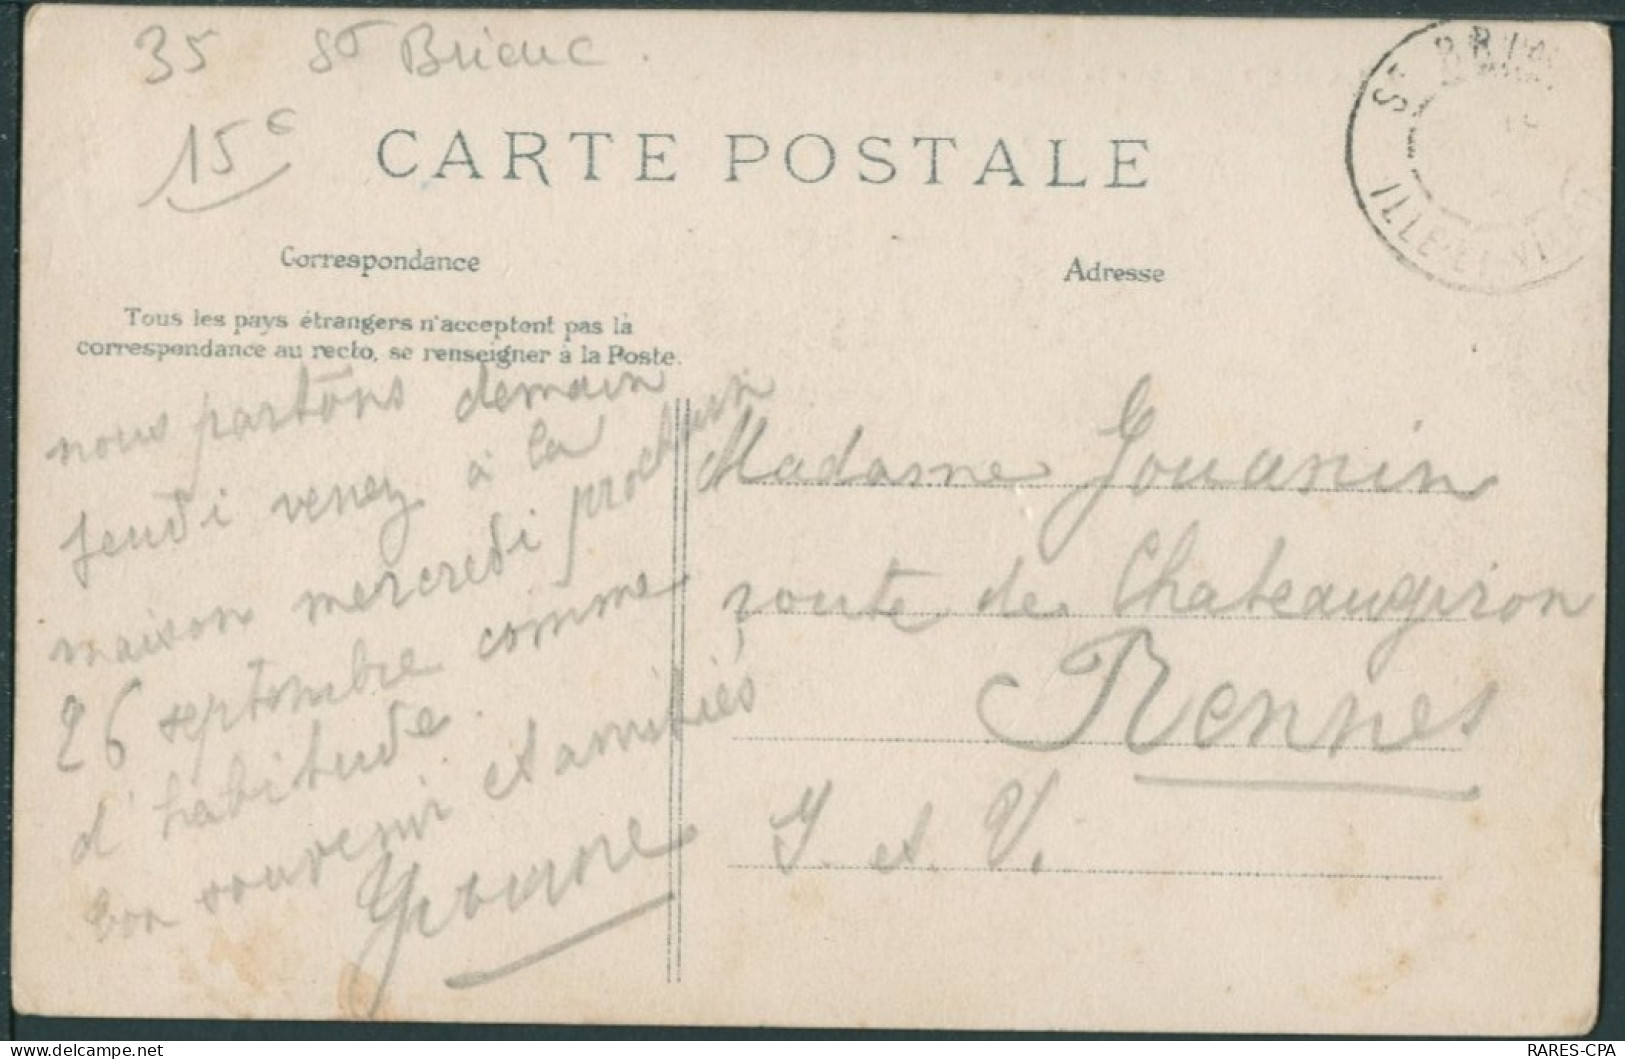 35 St Brieuc.
15 c
CARTE POSTALE
St BRI
ILLE-ET-VI
Correspondance
Adresse
Tous les pays étrangers n'acceptent pas la
correspondance au recto, se renseigner à la Poste.
nous partons demain
jeudi venez à la
maison mercredi prochain
26 septembre comme
d'habitude.
bon souvenir et amitiés
Madame Jouanin
route de Chateaugiron
Rennes
I. et V.
RARES-CPA